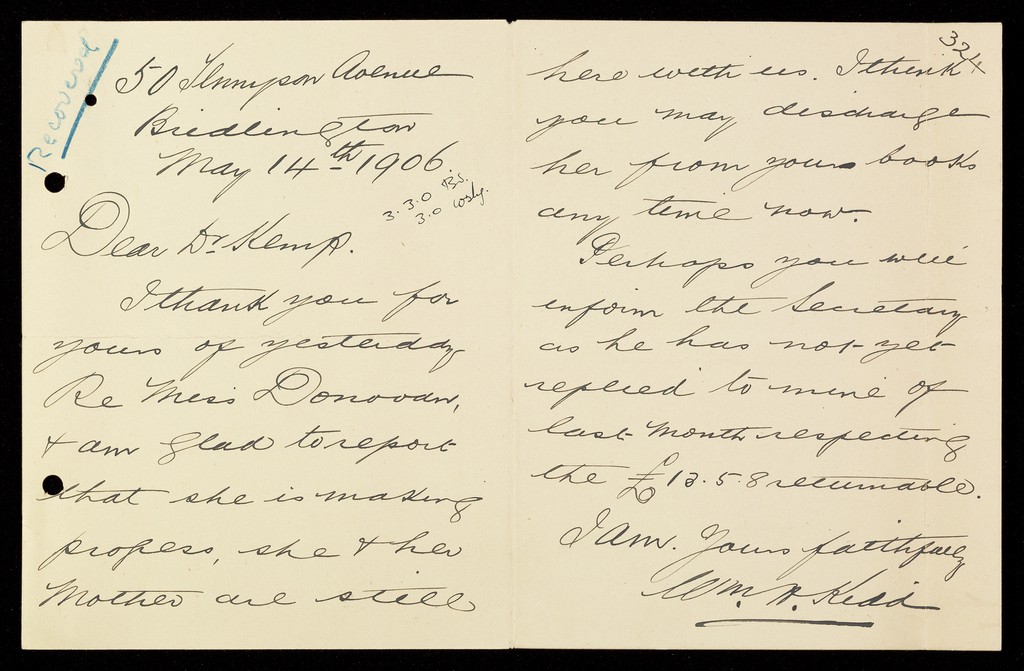 Recovered
50 Tennyson Avenue
Bridlington
May 14th 1906.
3.3.0 Bd.
3.0 wshg.
Dear Dr Kemp.
I thank you for
yours of yesterday
Re Miss Donovan,
& am glad to report
that she is making
progess, she & her
Mother are still
324
here with us. I think
you may discharge
her from your books
any time now.
Perhaps you will
inform the Secretary
as he has not yet
replied to mine of
last month respecting
the £13.5.8 returnable.
I am. Yours faithfully
Wm. H. Kidd